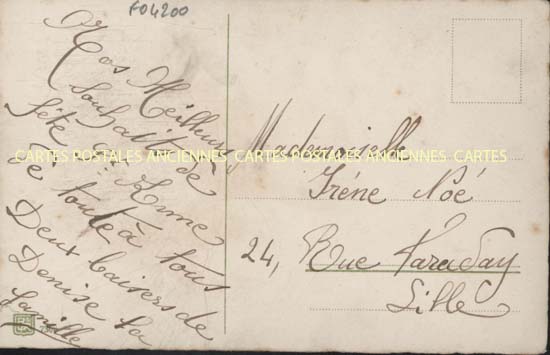 F04200
Nos Meilleurs
Souhaits de
fête à
de toute à tous
Deux baisers de
Denise la
famille
Mademoiselle
Irène Noé
24, Rue Faraday
Lille
CARTES POSTALES ANCIENNES CARTES POSTALES ANCIENNES CARTES